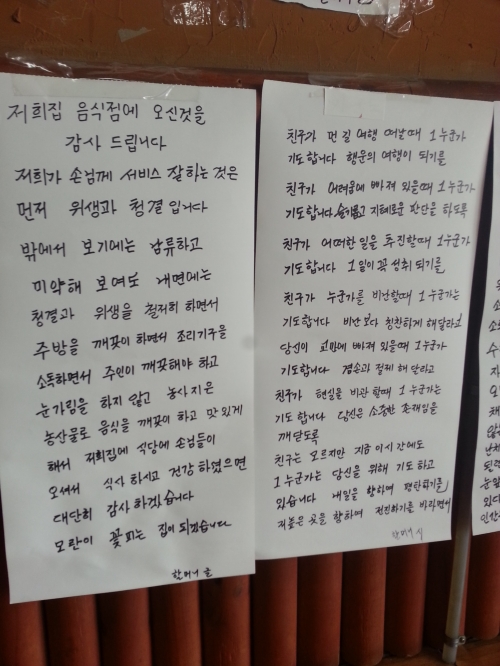 저희집 음식점에 오신것을
감사 드립니다
저희가 손님께 서비스 잘하는 것은
먼저 위생과 청결 입니다
밖에서 보기에는 남류하고
미약해 보여도 내면에는
청결과 위생을 철저히 하면서
주방을 깨끗이 하면서 조리기구을
소독하면서 주인이 깨끗해야 하고
눈가림을 하지 않고 농사 지은
농산물로 음식을 깨끗이 하고 맛있게
해서 저희집에 식당에 손님들이
오셔서 식사 하시고 건강 하였으면
대단히 감사 하겠습니다
모란이 꽃피는 집이 되겠습니다
할머니 글
친구가 먼 길 여행 떠날때 1누군가
기도합니다 행운의 여행이 되기를
친구가 어려움에 빠져 있을때 1누군가
기도합니다 슬기롭고 지혜로운 판단을 하도록
친구가 어떠한 일을 추진할때 1누군가
기도합니다 1일이 꼭 성취 되기를
친구가 누군가를 비난할때 1누군가는
기도합니다 비난 보다 칭찬하게 해달라고
당신이 교만에 빠져 있을때 1누군가
기도합니다 겸손과 절제 해 달라고
친구가 현실을 비관 할때 1누군가는
기도 합니다 당신은 소중한 존재임을
깨닫도록
친구는 모르지만 지금 이시간에도
1누군가는 당신을 위해 기도 하고
있습니다 내일을 향하며 평탄하기를
저높은 곳을 향하며 전진하기를 바라면서
할머니 시